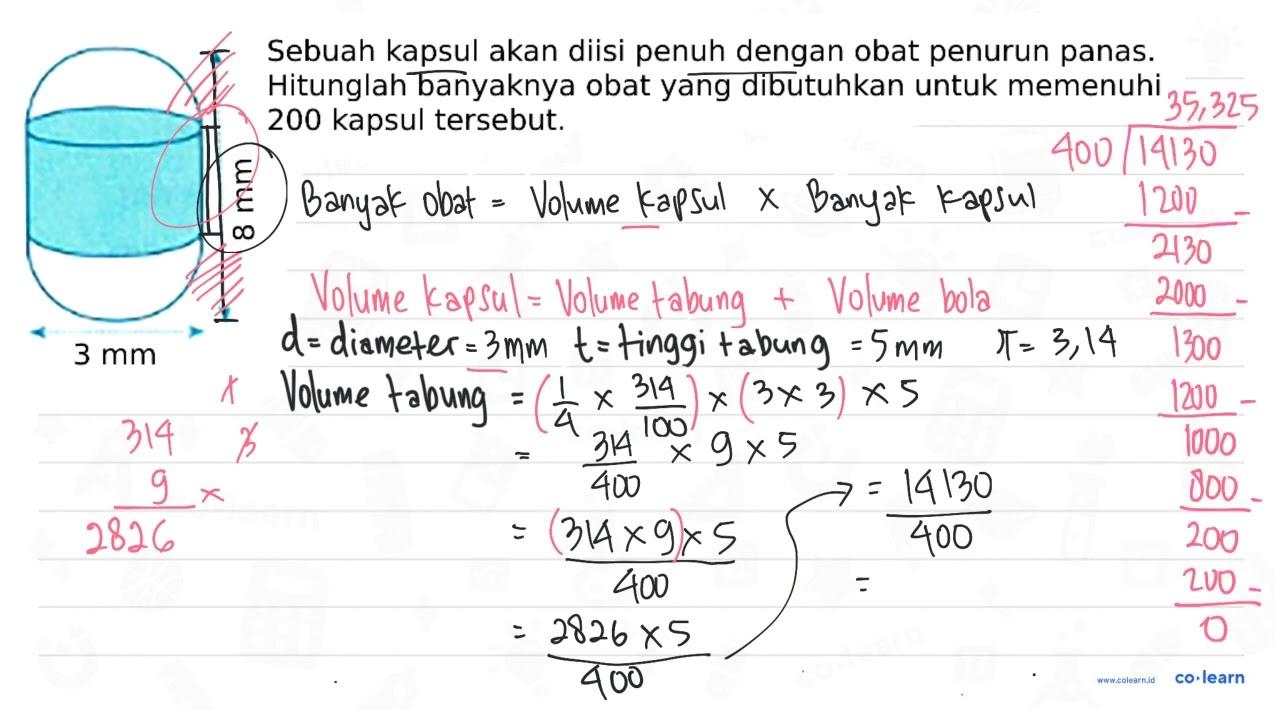 Sebuah kapsul akan diisi penuh dengan obat penurun panas.
Hitunglah banyaknya obat yang dibutuhkan untuk memenuhi
200 kapsul tersebut.
8 mm
3 mm
Banyak obat = Volume kapsul × Banyak kapsul
Volume kapsul = Volume tabung + Volume bola
d = diameter = 3mm t = tinggi tabung = 5 mm π = 3,14
Volume tabung = (1/4 × 314/100) × (3 × 3) × 5
= 314/400 × 9 × 5
= (314 × 9) × 5 / 400
= 2826 × 5 / 400
= 14130 / 400
=
314
9 ×
2826
35,325
400 14130
1200 -
2130
2000 -
1300
1200 -
1000
800 -
200
200 -
0
www.colearn.id co·learn